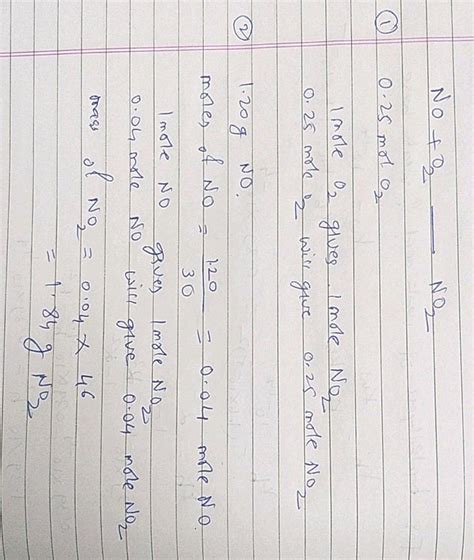 NO + O2 — NO2
① 0.25 mol O2
1 mole O2 gives 1 mole NO2
0.25 mole O2 will give 0.25 mole NO2
② 1.20 g NO.
moles of NO = 120/30 = 0.04 mole NO.
1 mole NO gives 1 mole NO2
0.04 mole NO will give 0.04 mole NO2
mass of NO2 = 0.04 × 46
= 1.84 g NO2